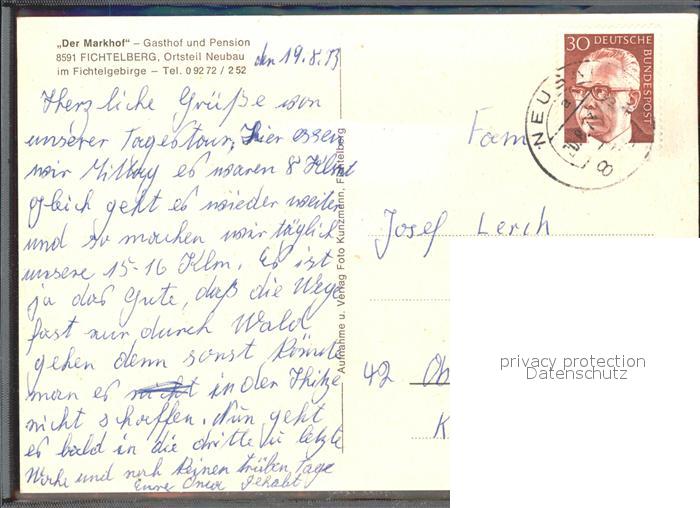 „Der Markhof“ – Gasthof und Pension
8591 FICHTELBERG, Ortsteil Neubau
im Fichtelgebirge – Tel. 0 92 72 / 2 52
den 19.8.73
Herzliche Grüße von
unserer Tagestour, Hier essen
wir Mittag es waren 8 Klmt
gleich geht es wieder weiter
und so machen wir täglich
unsere 15-16 Klm. Es ist
ja das Gute, daß die Wege
fast nur durch Wald
gehen denn sonst könnte
man es in der Hitze
nicht schaffen. Nun geht
es bald in die dritte u letzte
Woche und noch keinen trüben Tage
gehabt
Aufnahme u. Verlag Foto Kunzmann, Fichtelberg
30 DEUTSCHE
BUNDESPOST
NEU
8
Fam
Josef Lerch
42 Ob
K
privacy protection
Datenschutz